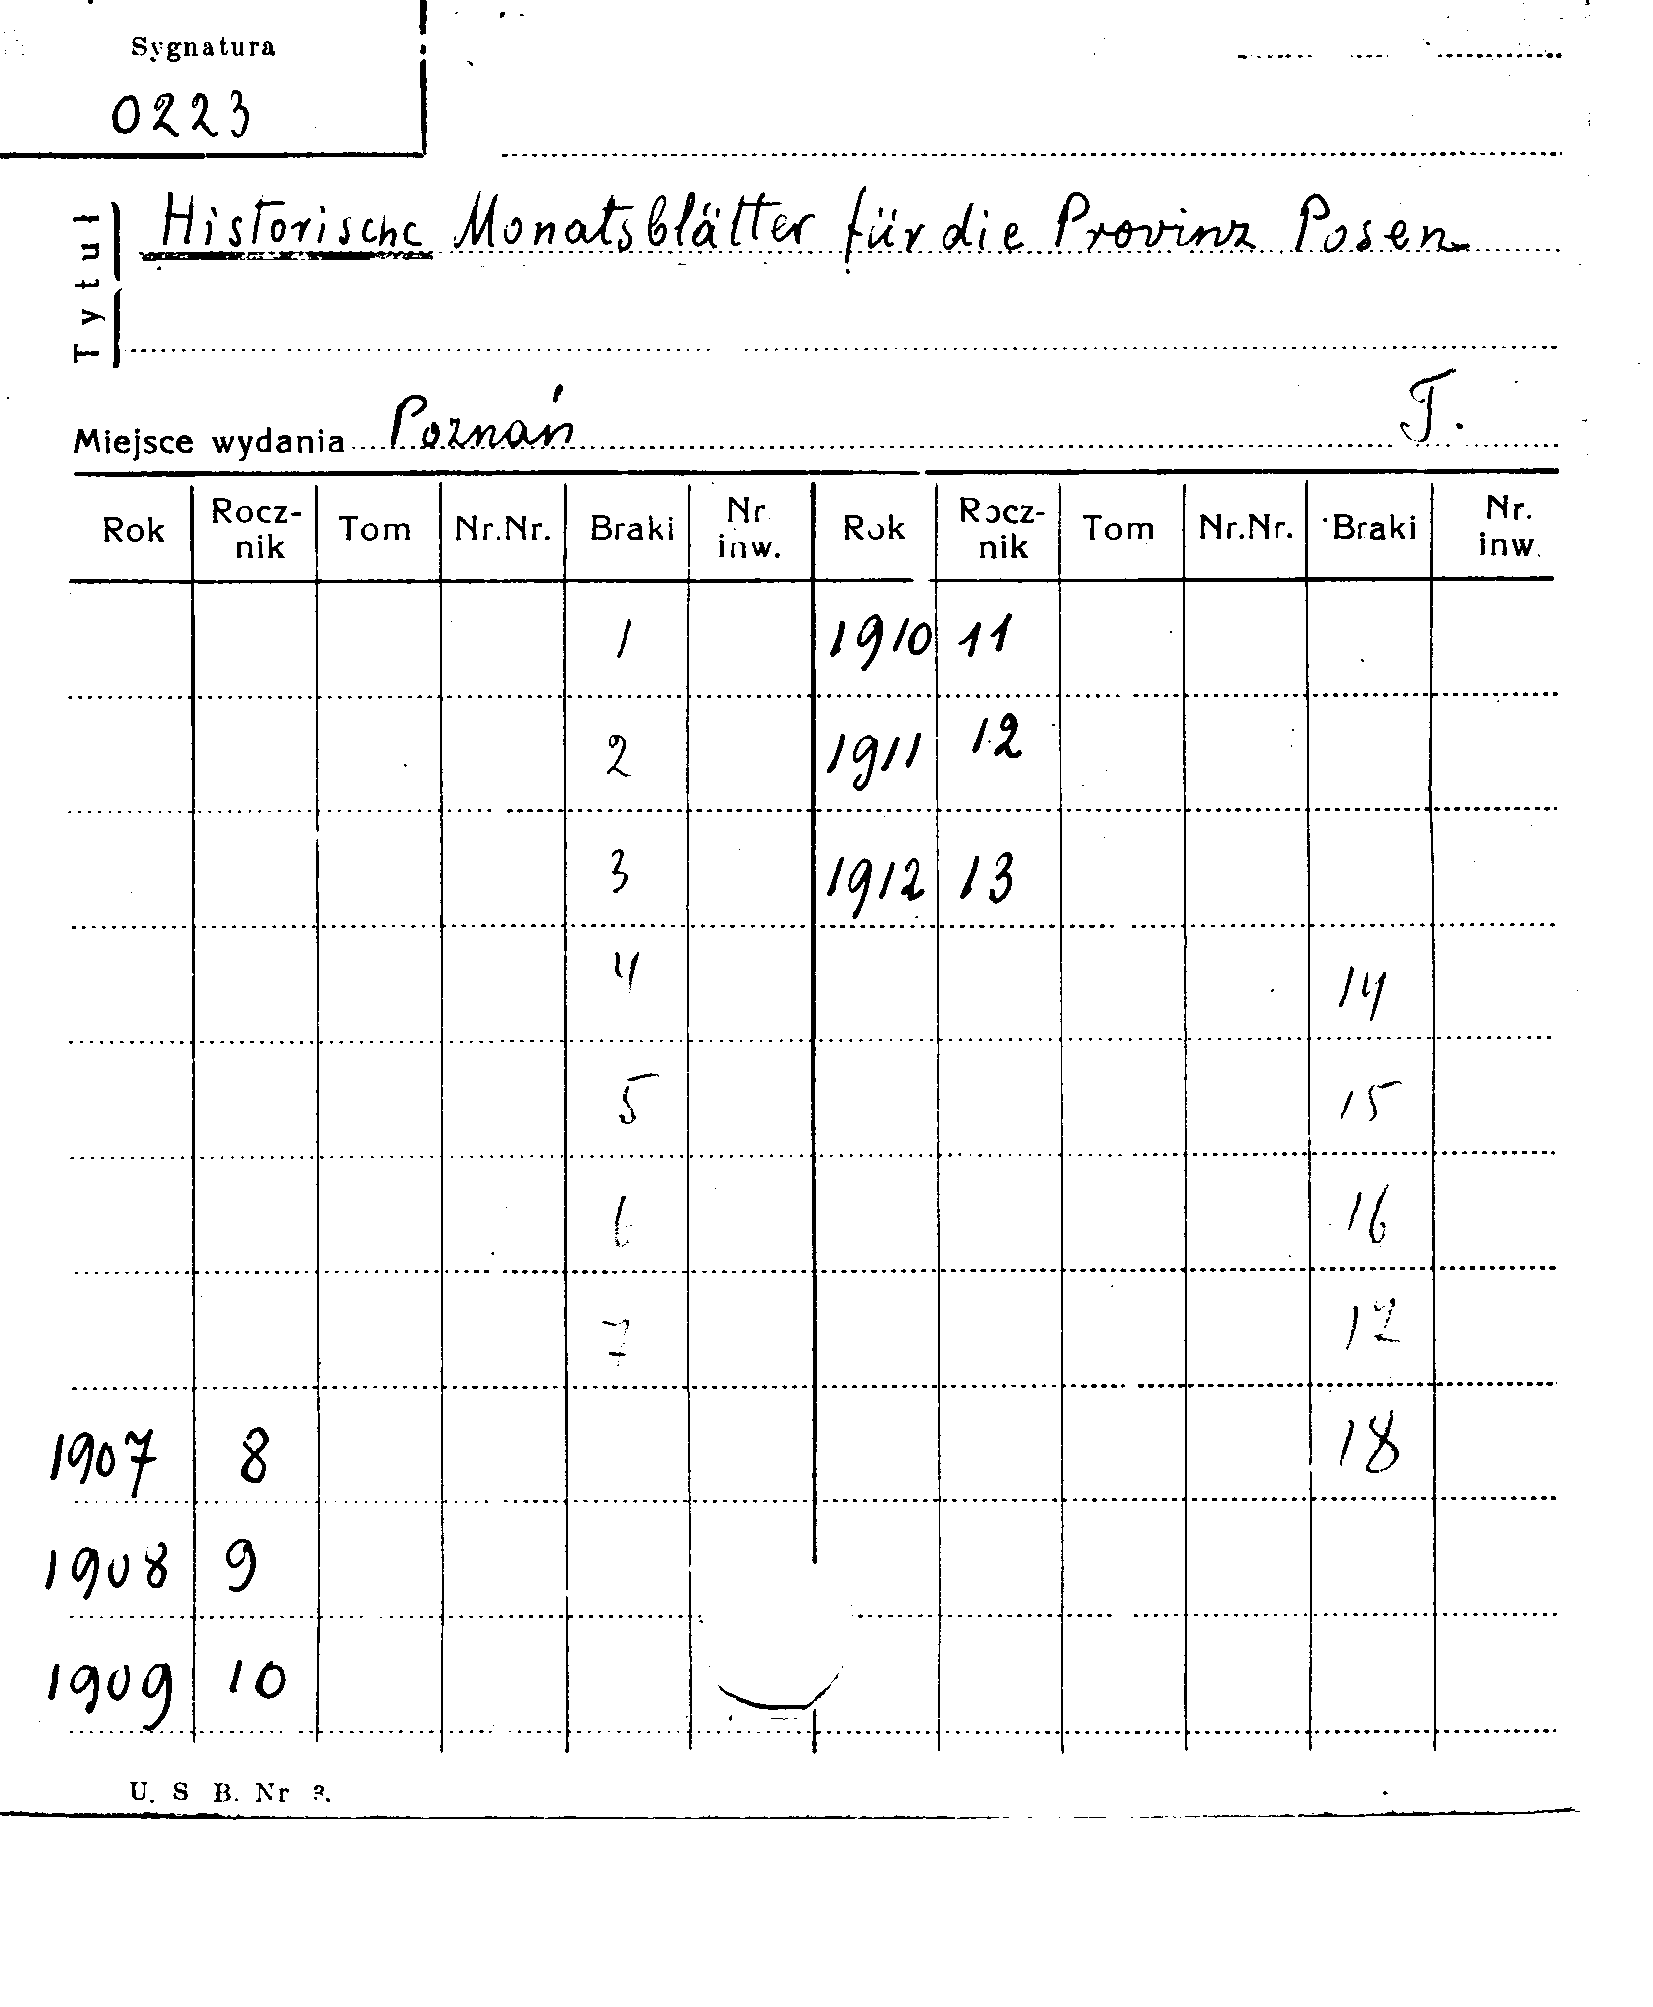 Sygnatura
0223
Tytuł
Historische Monatsblätter für die Provinz Posen
Miejsce wydania Poznań T.
Rok Rocz-nik Tom Nr.Nr. Braki Nr inw. Rok Rocz-nik Tom Nr.Nr. Braki Nr. inw.
1 1910 11
2 1911 12
3 1912 13
4 14
5 15
6 16
7 17
1907 8 18
1908 9
1909 10
U. S B. Nr 3.